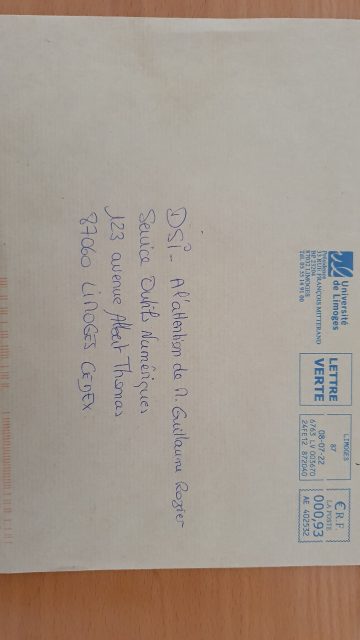 Université
de Limoges
Présidence
33 RUE FRANÇOIS MITTERAND
BP 23204
87032 LIMOGES
Tél. 05 55 14 91 00
LETTRE
VERTE
LIMOGES
87
08-07-22
6763 LV 005670
24FE12 872040
€ R.F.
LA POSTE
000,93
AE 402532
DSI - A l'attention de M. Guillaume Rozier
Service Outils Numériques
123 avenue Albert Thomas
87060 LIMOGES CEDEX